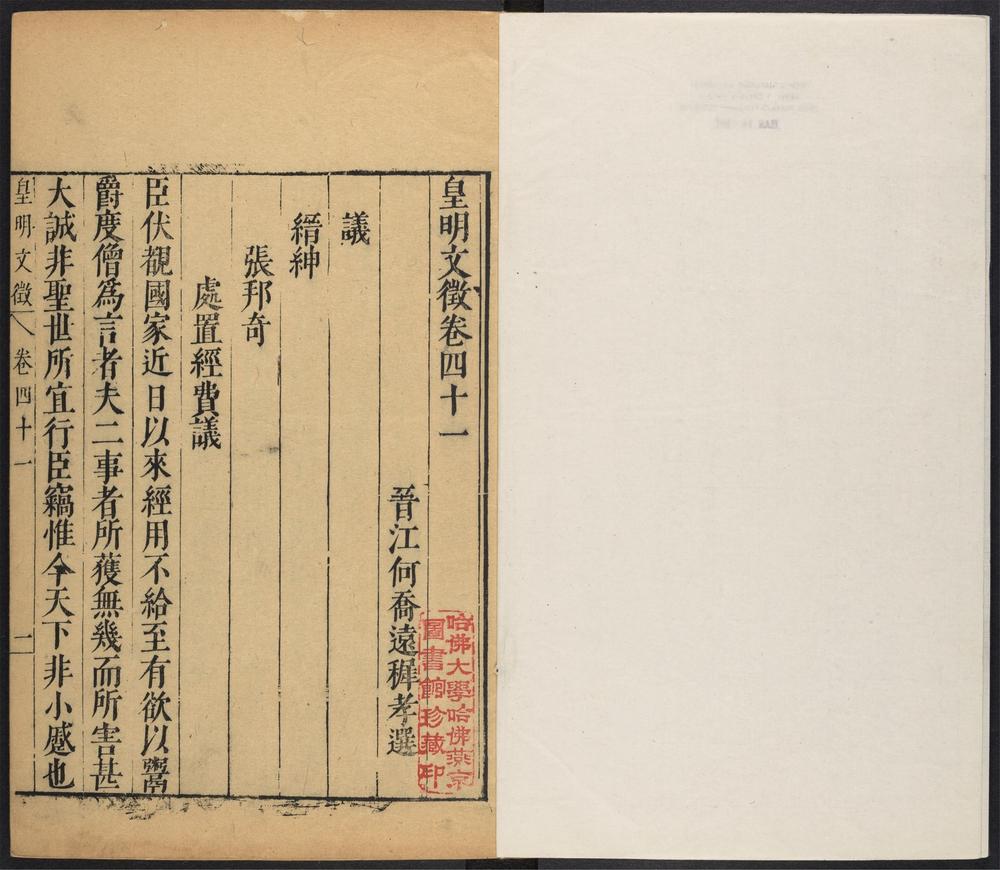 皇明文徵卷四十一
晉江何喬遠穉孝選
議
縉紳
張邦奇
處置經費議
臣伏覩國家近日以來經用不給至有欲以鬻
爵度僧爲言者夫二事者所獲無幾而所害甚
大誠非聖世所宜行臣竊惟今天下非小蹙也
皇明文徵 卷四十一 一
哈佛大學哈佛燕京
圖書館珍藏印